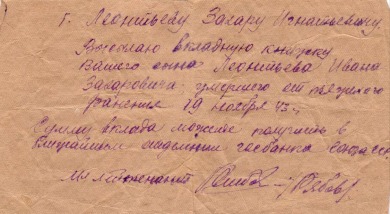 г. Леонтьеву Захару Игнатьевичу.
Высылаю вкладную книжку
Вашего сына Леонтьева Ивана
Захаровича умершего от тяжелого
ранения 29 ноября 43 г.
Сумму вклада можете получить в
отделении госбанка союза сср
мл лейтенант